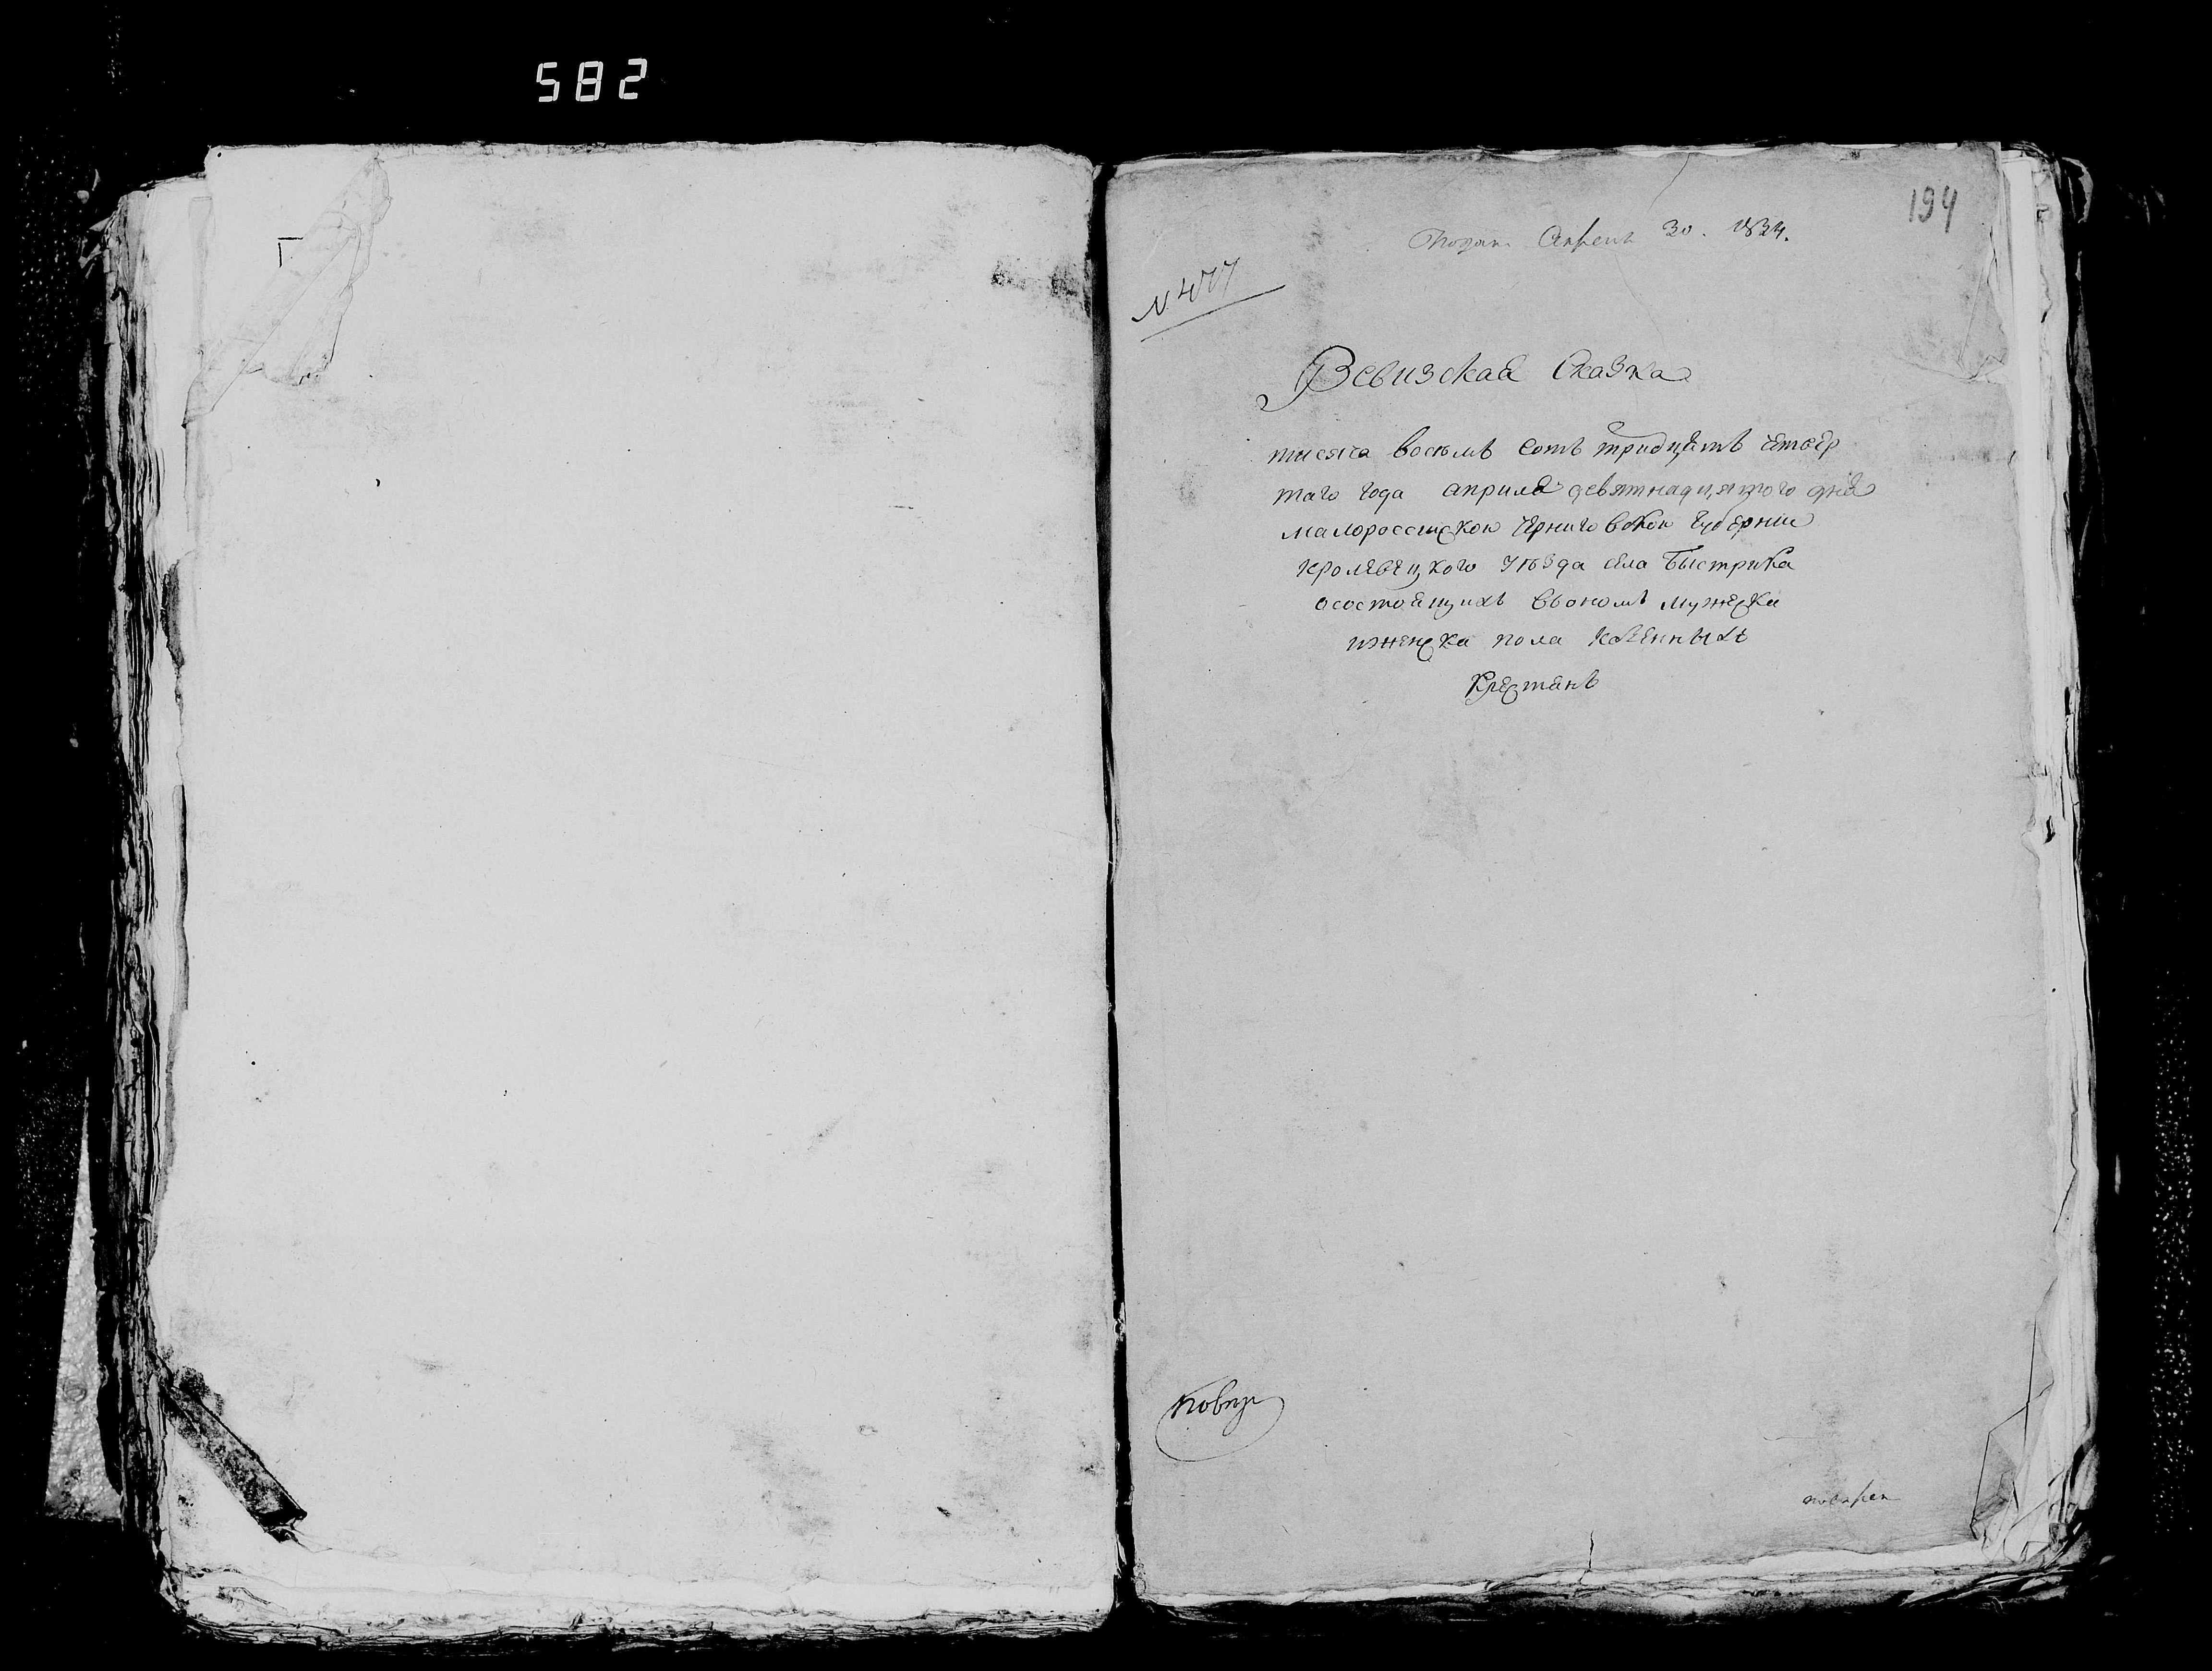 582
194
Подана Апреля 30. 1834.
Ревизская Сказка
тисяча восемъ сотъ тридцать четвер
таго года априля девятнадцятого дня
малороссискои Черниговскои Губернии
кролевецкого уезда села Быстрика
осостоящихъ въономъ мужеска
иженска пола казенныхъ
Крестянъ